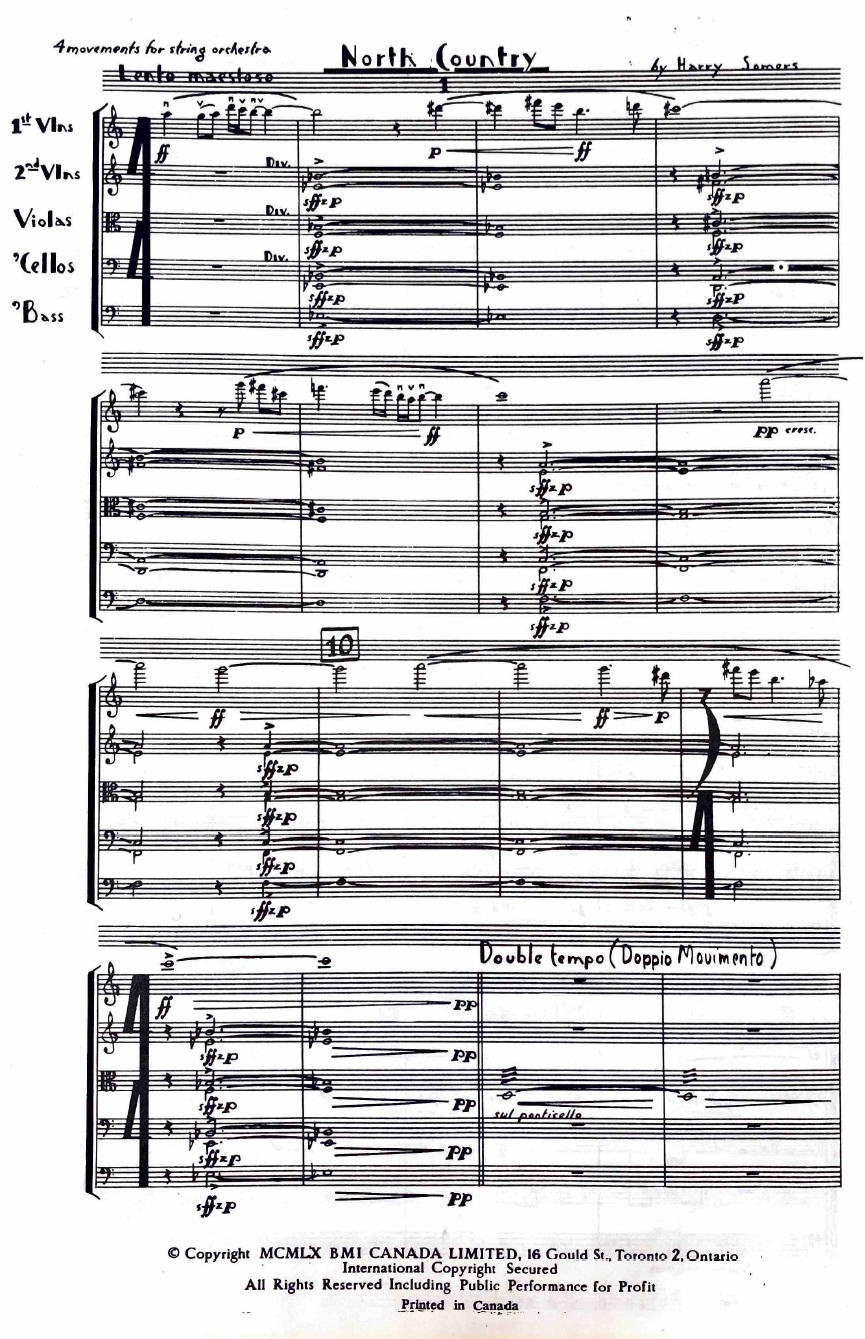 4 movements for string orchestra
North Country
by Harry Somers
Lento maestoso
1
1st Vlns
ff
p
ff
2nd Vlns
Div.
sffzp
sffzp
Violas
Div.
sffzp
sffzp
'Cellos
Div.
sffzp
sffzp
'Bass
sffzp
sffzp
p
ff
pp cresc.
sffzp
sffzp
sffzp
sffzp
10
ff
ff
p
sffzp
sffzp
sffzp
sffzp
Double tempo (Doppio Movimento)
ff
pp
sffzp
pp
sffzp
pp
sul ponticello
sffzp
pp
sffzp
pp
© Copyright MCMLX BMI CANADA LIMITED, 16 Gould St., Toronto 2, Ontario
International Copyright Secured
All Rights Reserved Including Public Performance for Profit
Printed in Canada